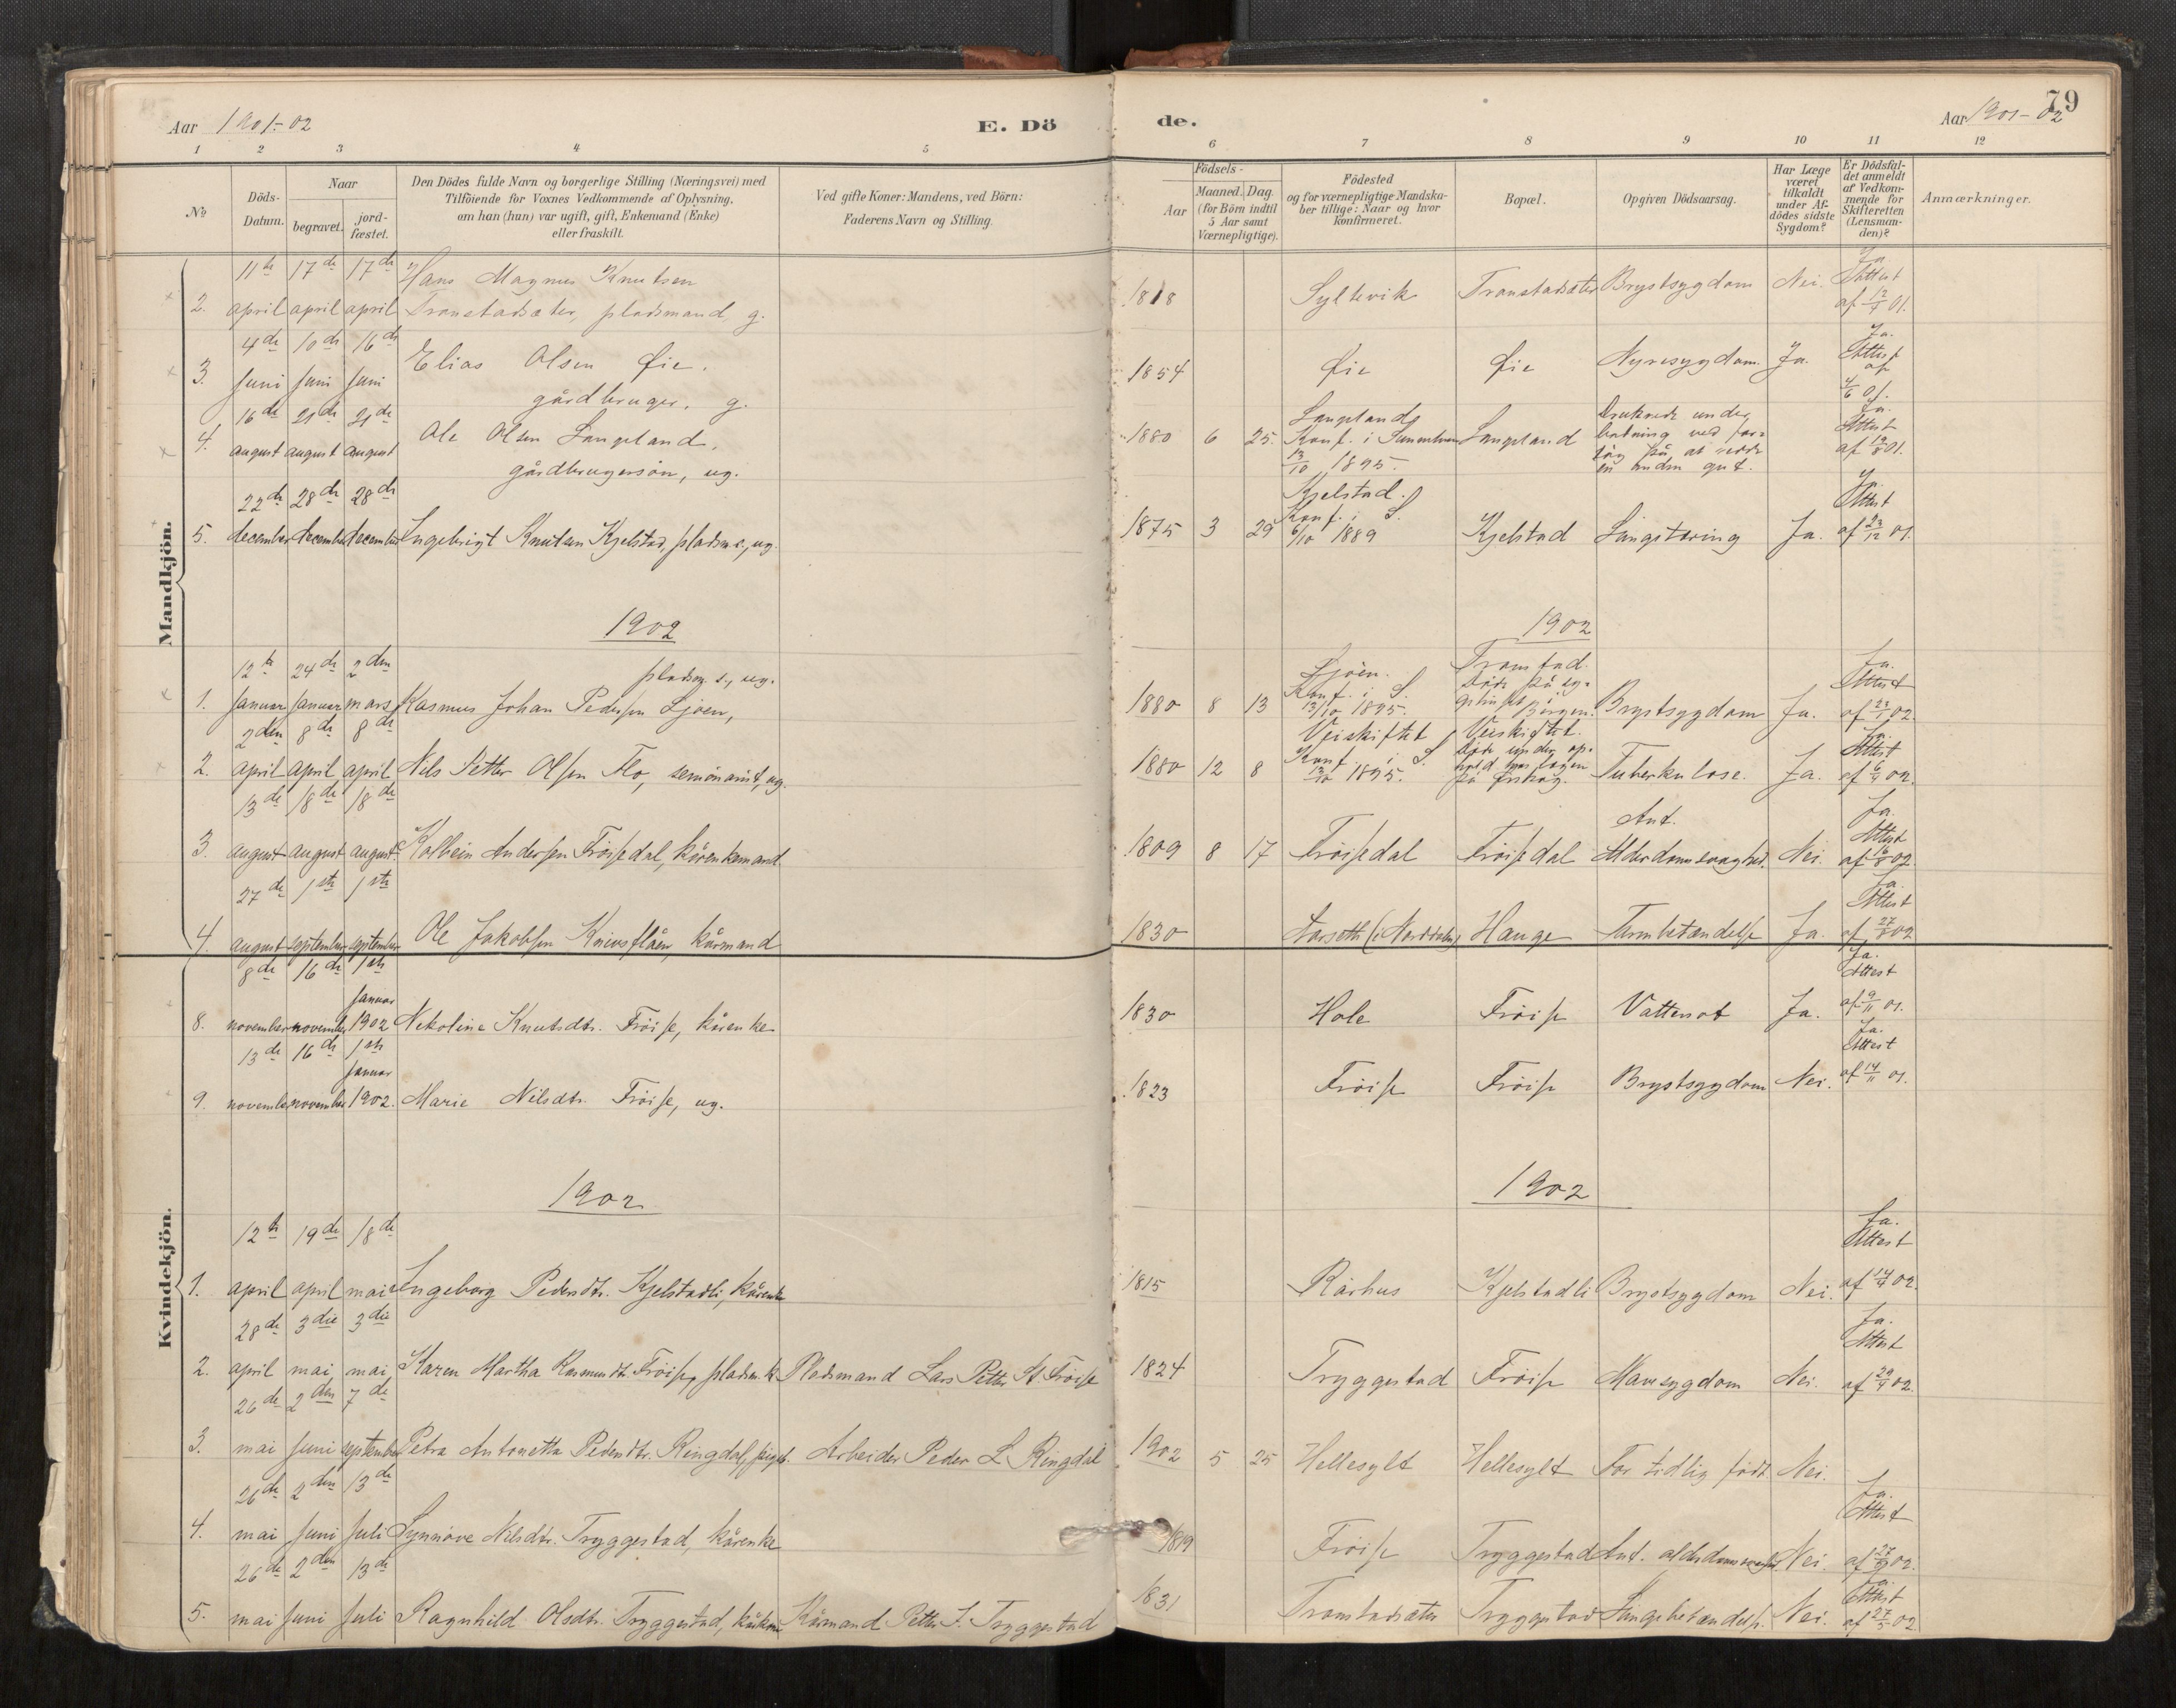 Aar 1901-02
E. Döde.
Aar 1901-02
79
1 2 3 4 5 6 7 8 9 10 11 12
No
Döds-Datum.
Naar
begravet.
jord-fæstet.
Den Dödes fulde Navn og borgerlige Stilling (Næringsvei) med
Tilföiende for Voxnes Vedkommende af Oplysning,
om han (hun) var ugift, gift, Enkemand (Enke)
eller fraskilt.
Ved gifte Koner: Mandens, ved Börn:
Faderens Navn og Stilling.
Födsels-
Aar
Maaned. Dag.
(for Börn indtil
5 Aar samt
Værnepligtige).
Födested
og for værnepligtige Mandska-
ber tillige: Naar og hvor
konfirmeret.
Bopæl.
Opgiven Dödsaarsag.
Har Læge
været
tilkaldt
under Af-
dödes sidste
Sygdom?
Er Dödsfal-
det anmeldt
af Vedkom-
mende for
Skifteretten
(Lensman-
den)?
Anmærkninger.
Mandkjön.
2. 11te april 17de april 17de april Hans Magnus Knutsen
Tronstadsæter, pladsmand g. 1818 Syltevik Tronstadsæter Brystsygdom Nei. Ja Attest af 12/4 01.
3. 4de juni 10de juni 16de juni Elias Olsen Øie.
gårdbruger, g. 1854 Øie Øie Nyresygdom. Ja. Ja. Attest af 4/6 01.
4. 16de august 21de august 21de august Ole Olsen Langeland,
gårdbrugersön, ug. 1880 6 25. Langeland Konf. i 13/10 1895. Langeland Druknede under badning ved for-
sög på at redde en anden gut. Ja. Attest af 19/8 01.
5. 22de december 28de december 28de december Ingebrigt Knutsen Kjelstad, pladsm.s., ug. 1875 3 29 Kjelstad. Konf. i S. 6/10 1889 Kjelstad Lungetæring Ja. Ja. Attest af 23/12 01.
1902
1902
1. 12te januar 24de januar 2den mars pladsm. s., ug.
Rasmus Johan Pedersen Ljøen, 1880 8 13 Ljöen. Konf. i S. 13/10 1895. Tronstad. Döde på sy-
gehuset i Bergen. Brystsygdom Ja. Ja. Attest af 23/1 02.
2. 2den april 8de april 8de april Nils Petter Olsen Flo, seminarist, ug. 1880 12 8 Veiskiftet Konf. i S. 13/10 1895. Veiskiftet. Döde under op-
hold Tuberkulose. Ja. Ja. Attest af 6/4 02.
3. 13de august 18de august 18de august Kolbein Andersen Fröisedal, kårenkemand 1809 8 17 Fröisedal Fröisedal Ant.
Alderdomssvaghed. Nei. Ja. Attest af 16/8 02.
4. 27de august 1ste september 1ste september Ole Jakobsen Knivsflåen, kårmand 1830 Hauge Tarmbetændelse Ja. Ja. Attest af 27/8 02
Kvindekjön.
8. 8de november 16de november 1ste januar 1902 Nikoline Knutsdtr. Fröise, kårenke 1830 Hole Fröise Vattersot Ja. Ja. Attest af 9/11 01.
9. 13de november 16de november 1ste januar 1902. Marie Nilsdtr. Fröise, ug. 1823 Fröise Fröise Brystsygdom Nei. Ja. Attest af 14/11 01.
1902
1902
1. 12te april 19de april 18de mai Ingeborg Pedersdtr. Kjelstadli, kårenke 1815 Rårhus Kjelstadli Brystsygdom Nei. Ja. Attest af 14/4 02.
2. 28de april 3die mai 3die mai Karen Martha Rasmusdtr. Fröise, pladsm. k. Pladsmand Lars Petter St. Fröise 1824 Tryggestad Fröise Mavesygdom Nei. Ja. Attest af 29/4 02.
3. 26de mai 2den juni 7de september Petra Antonetta Pedersdtr. Ringdal, pigeb. Arbeider Peder L Ringdal 1902 5 25 Hellesylt Hellesylt For tidlig födt. Nei.
4. 26de mai 2den juni 13de juli Synnöve Nilsdtr. Tryggestad, kårenke 1819 Fröise Tryggestad Ant. alderdomssvaghed Nei. Ja. Attest af 27/5 02.
5. 26de mai 2den juni 13de juli Ragnhild Olsdtr. Tryggestad, kårkone Kårmand Petter J. Tryggestad 1831 Tronstadsæter Tryggestad Lungebetændelse. Nei. Ja. Attest af 27/5 02